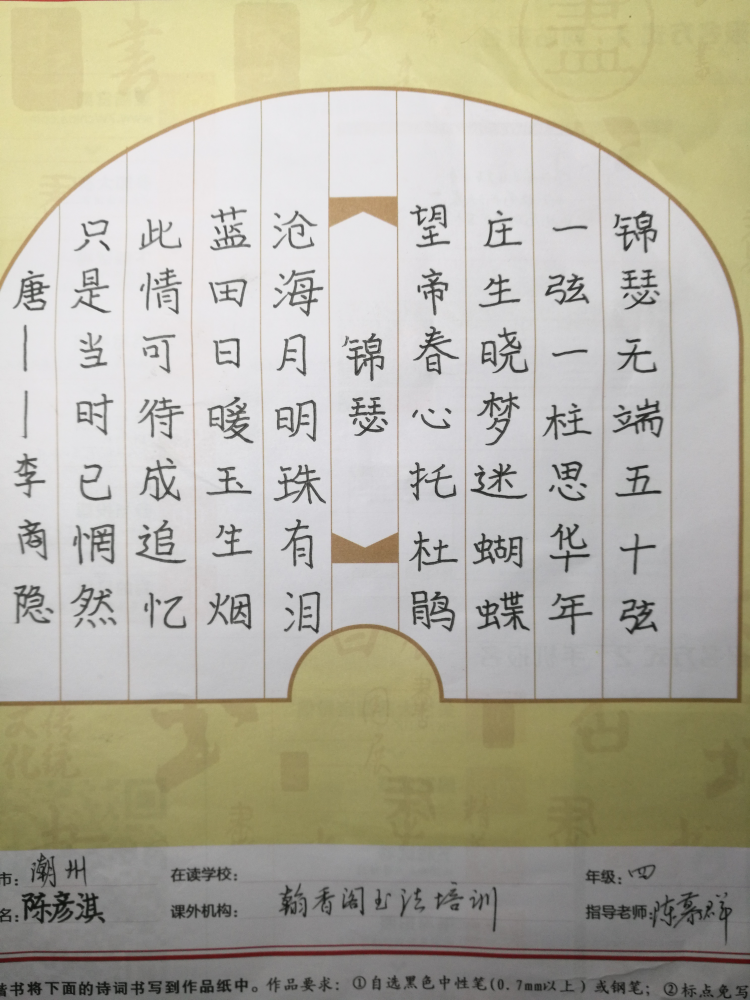 锦瑟无端五十弦
一弦一柱思华年
庄生晓梦迷蝴蝶
望帝春心托杜鹃
锦瑟
沧海月明珠有泪
蓝田日暖玉生烟
此情可待成追忆
只是当时已惘然
唐——李商隐
市：潮州
在读学校：
年级：四
名：陈彦淇
课外机构：翰香阁书法培训
指导老师：陈慕群
楷书将下面的诗词书写到作品纸中。作品要求：①自选黑色中性笔(0.7mm以上)或钢笔；②标点免写